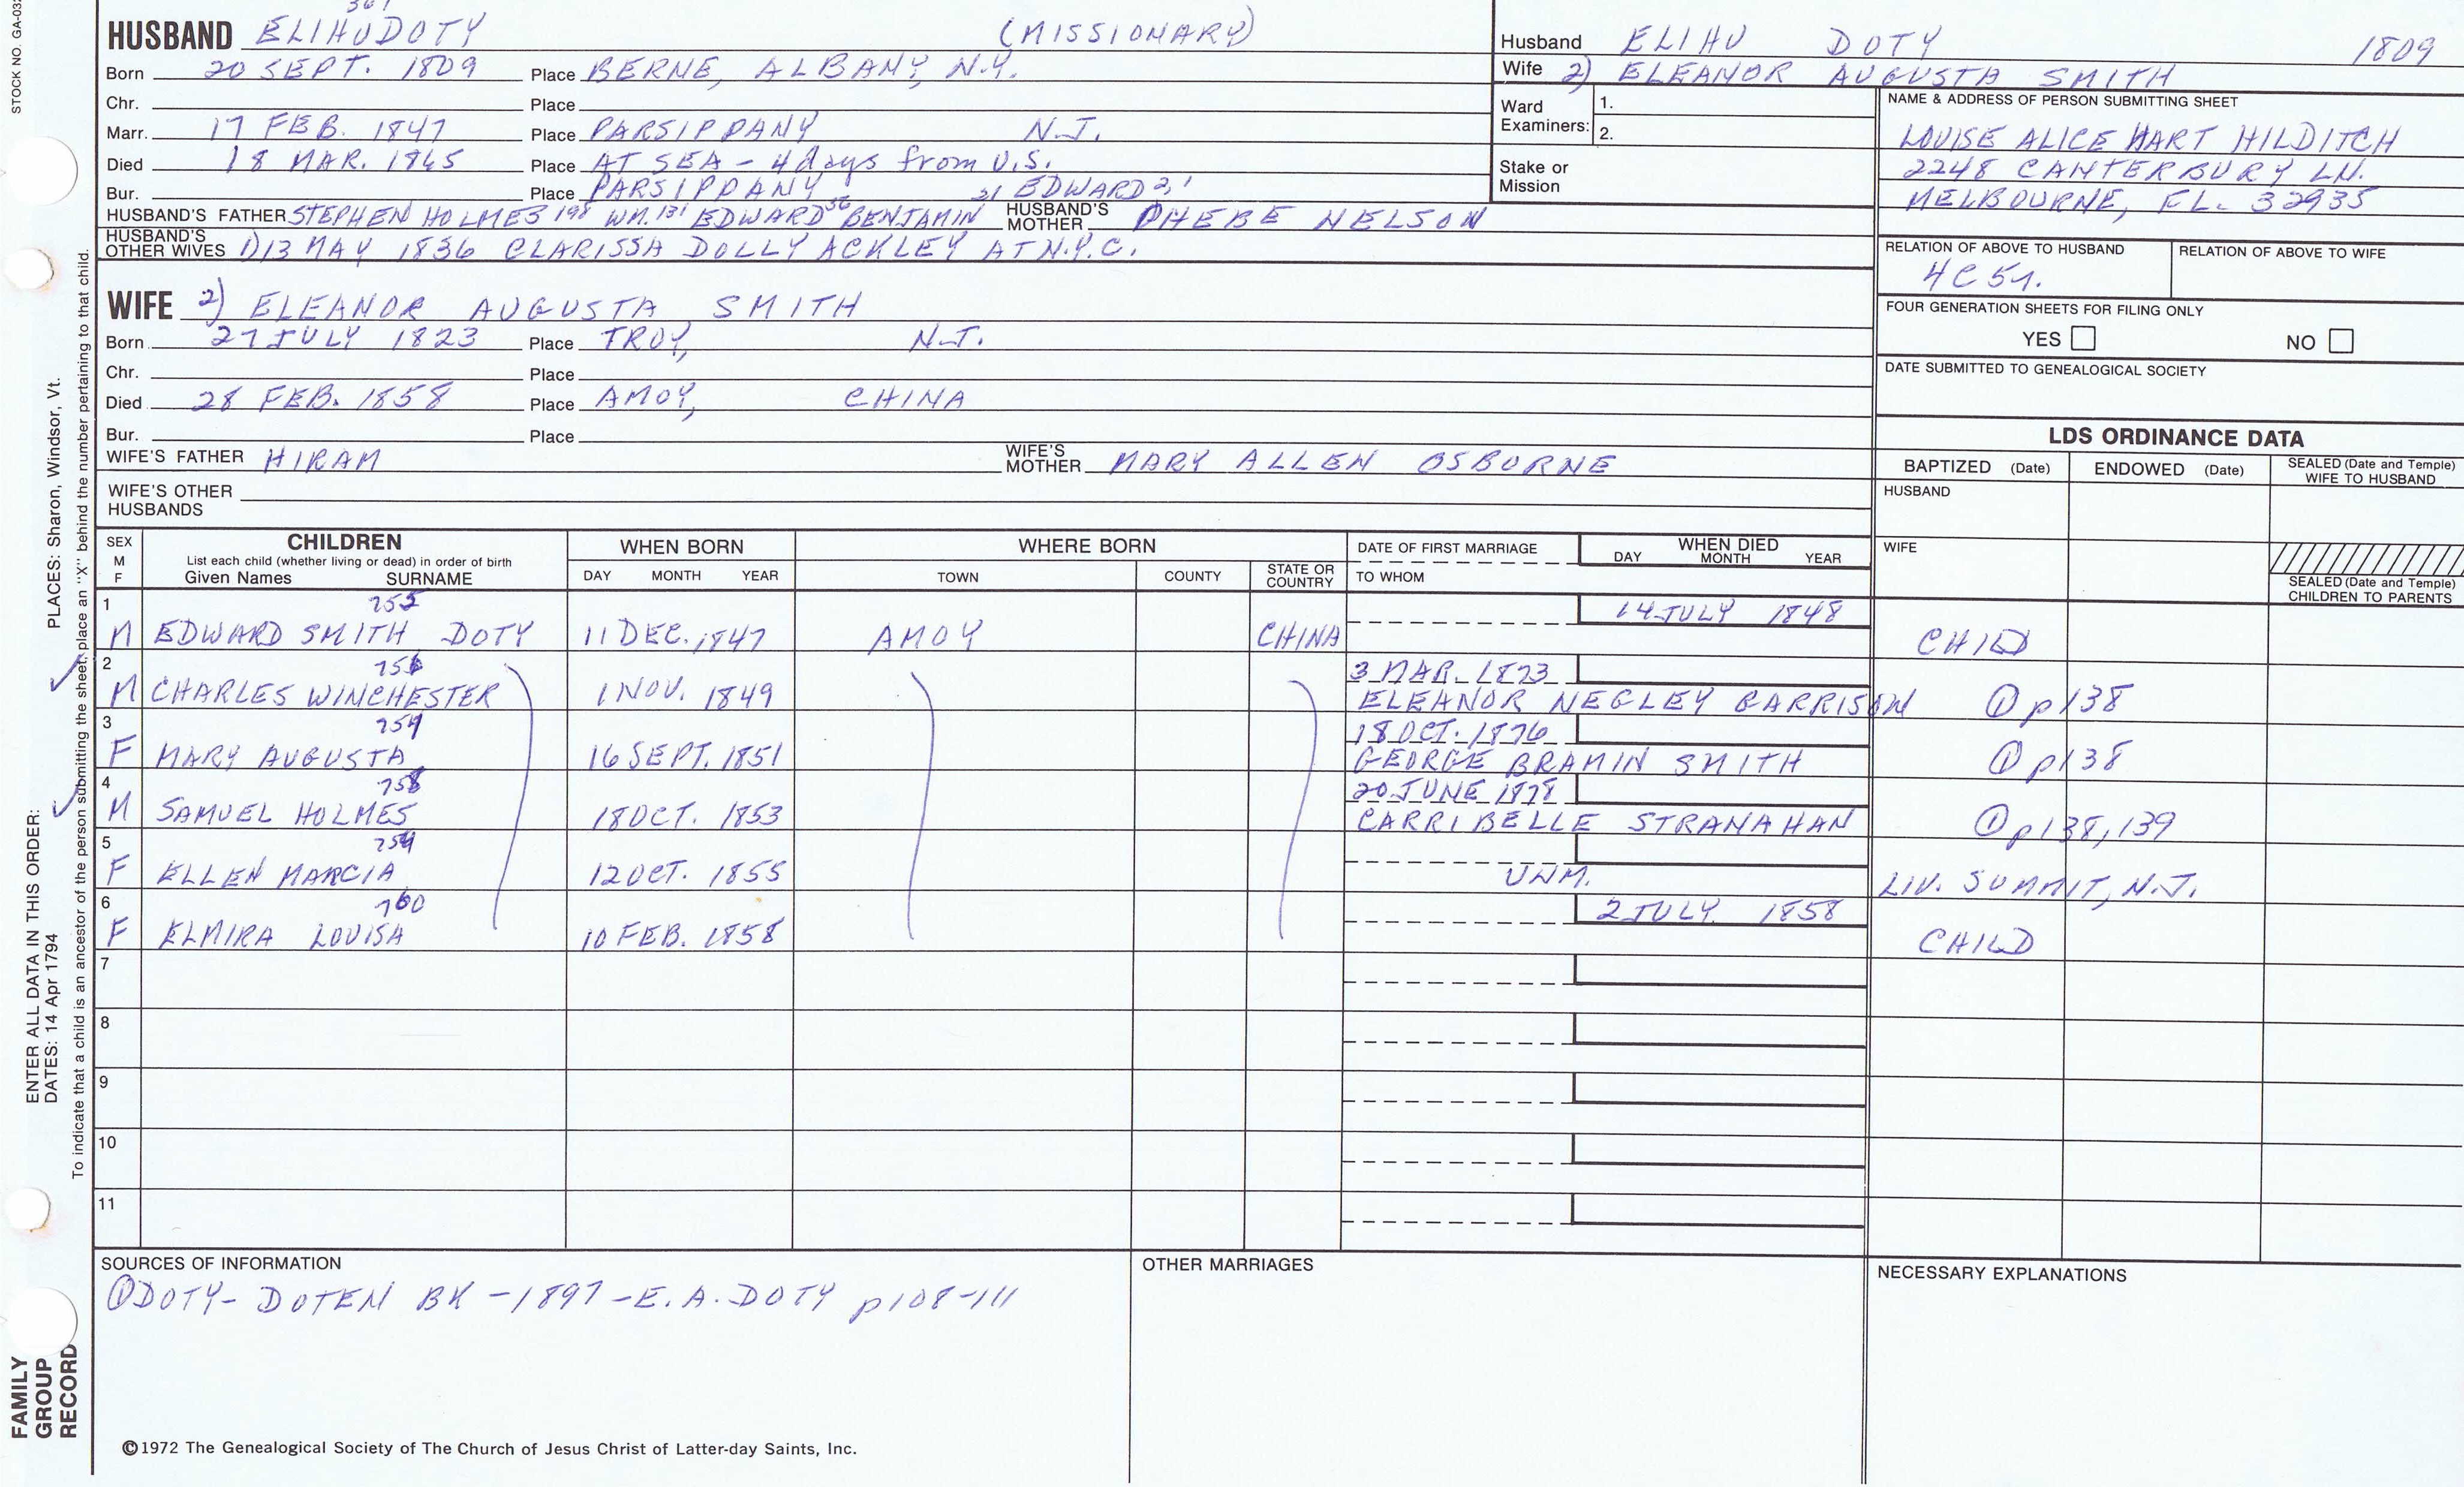 STOCK NO. GA-03
361
HUSBAND ELIHU DOTY (MISSIONARY)
Born 20 SEPT. 1809 Place BERNE, ALBANY, N.Y.
Chr. Place
Marr. 17 FEB. 1847 Place PARSIPPANY N.J.
Died 18 MAR. 1865 Place AT SEA - 4 days from U.S.
Bur. Place PARSIPPANY
21 EDWARD 2, 1
HUSBAND'S FATHER STEPHEN HOLMES 198 WM. 131 EDWARD 56 BENJAMIN HUSBAND'S MOTHER PHEBE NELSON
HUSBAND'S OTHER WIVES 1) 13 MAY 1836 CLARISSA DOLLY ACKLEY AT N.Y.C.
WIFE 2) ELEANOR AUGUSTA SMITH
Born 27 JULY 1823 Place TROY, N.J.
Chr. Place
Died 28 FEB. 1858 Place AMOY, CHINA
Bur. Place
WIFE'S FATHER HIRAM WIFE'S MOTHER MARY ALLEN OSBORNE
WIFE'S OTHER HUSBANDS
Husband ELIHU DOTY 1809
Wife 2) ELEANOR AUGUSTA SMITH
Ward Examiners: 1.
2.
Stake or Mission
NAME & ADDRESS OF PERSON SUBMITTING SHEET
LOUISE ALICE HART HILDITCH
2248 CANTERBURY LN.
MELBOURNE, FL. 32935
RELATION OF ABOVE TO HUSBAND RELATION OF ABOVE TO WIFE
4C5r.
FOUR GENERATION SHEETS FOR FILING ONLY
YES NO
DATE SUBMITTED TO GENEALOGICAL SOCIETY
LDS ORDINANCE DATA
BAPTIZED (Date) ENDOWED (Date) SEALED (Date and Temple) WIFE TO HUSBAND
HUSBAND
WIFE
SEALED (Date and Temple) CHILDREN TO PARENTS
SEX M F CHILDREN List each child (whether living or dead) in order of birth Given Names SURNAME WHEN BORN DAY MONTH YEAR WHERE BORN TOWN COUNTY STATE OR COUNTRY DATE OF FIRST MARRIAGE TO WHOM WHEN DIED DAY MONTH YEAR
755
1 M EDWARD SMITH DOTY 11 DEC. 1847 AMOY CHINA 14 JULY 1848 CHILD
756
2 M CHARLES WINCHESTER 1 NOV. 1849 3 MAR. 1873 ELEANOR NEGLEY GARRISON ① p138
757
3 F MARY AUGUSTA 16 SEPT. 1851 18 OCT. 1876 GEORGE BRAMIN SMITH ① p138
758
4 M SAMUEL HOLMES 18 OCT. 1853 20 JUNE 1878 CARRIBELLE STRANAHAN ① p138, 139
759
5 F ELLEN MARCIA 12 OCT. 1855 UNM. LIV. SUMMIT, N.J.
760
6 F ELMIRA LOUISA 10 FEB. 1858 2 JULY 1858 CHILD
7
8
9
10
11
SOURCES OF INFORMATION
① DOTY - DOTEN BK - 1897 - E. A. DOTY p108-111
OTHER MARRIAGES
NECESSARY EXPLANATIONS
©1972 The Genealogical Society of The Church of Jesus Christ of Latter-day Saints, Inc.
ENTER ALL DATA IN THIS ORDER:
DATES: 14 Apr 1794 PLACES: Sharon, Windsor, Vt.
To indicate that a child is an ancestor of the person submitting the sheet, place an "X" behind the number pertaining to that child.
FAMILY
GROUP
RECORD